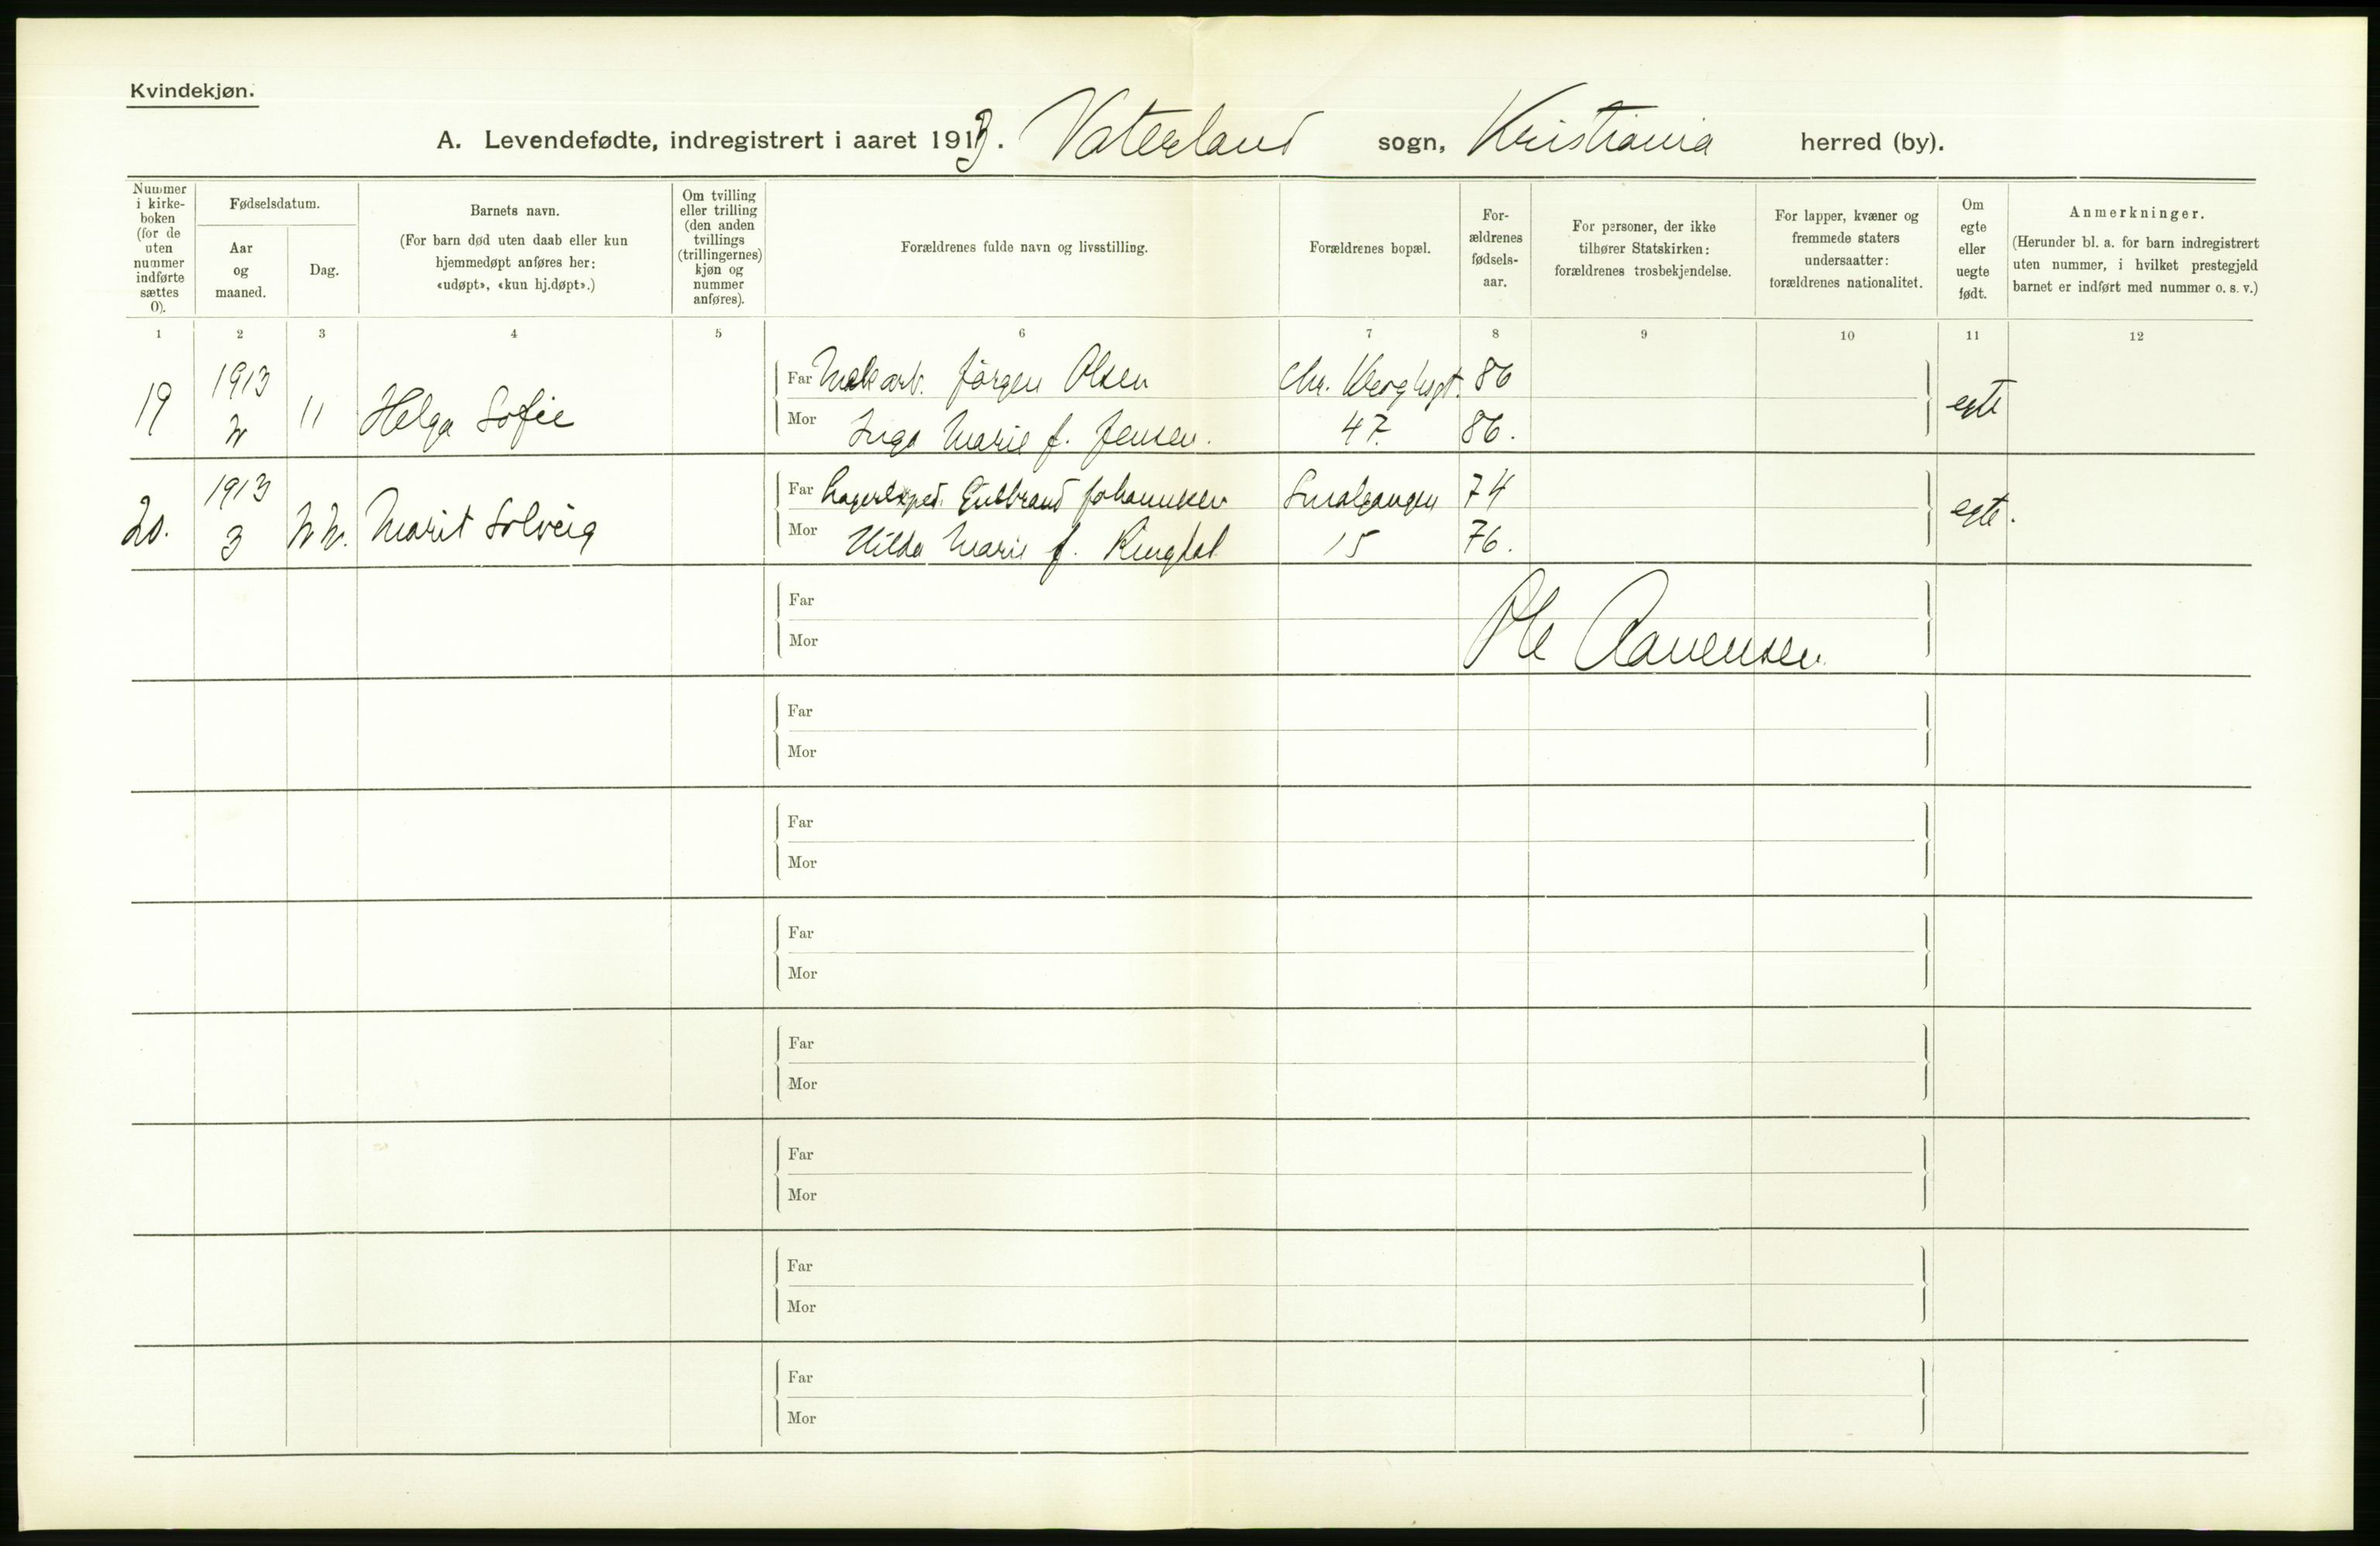 Kvindekjøn.
A. Levendefødte, indregistrert i aaret 1913. Vaterland sogn, Kristiania herred (by).
Nummer i kirke-boken (for de uten nummer indførte sættes 0).
Fødselsdatum.
Aar og maaned.
Dag.
Barnets navn.
(For barn død uten daab eller kun hjemmedøpt anføres her: «udøpt», «kun hj.døpt».)
Om tvilling eller trilling (den anden tvillings (trillingernes) kjøn og nummer anføres).
Forældrenes fulde navn og livsstilling.
Forældrenes bopæl.
For-ældrenes fødsels-aar.
For personer, der ikke tilhører Statskirken: forældrenes trosbekjendelse.
For lapper, kvæner og fremmede staters undersaatter: forældrenes nationalitet.
Om egte eller uegte født.
Anmerkninger.
(Herunder bl. a. for barn indregistrert uten nummer, i hvilket prestegjeld barnet er indført med nummer o. s. v.)
1 2 3 4 5 6 7 8 9 10 11 12
19 1913 2 11 Helga Sofie
Far Jörgen Olsen 86
Mor Inga Marie f. Jensen. 47. 86.
egte
20. 1913 3 22. Marit Solveig
Far Lagerexped. Gulbrand Johannesen Smalgangen 74
Mor Hilda Marie f. Ringdal 15 76.
egte.
Far
Mor
Ole
Far
Mor
Far
Mor
Far
Mor
Far
Mor
Far
Mor
Far
Mor
Far
Mor